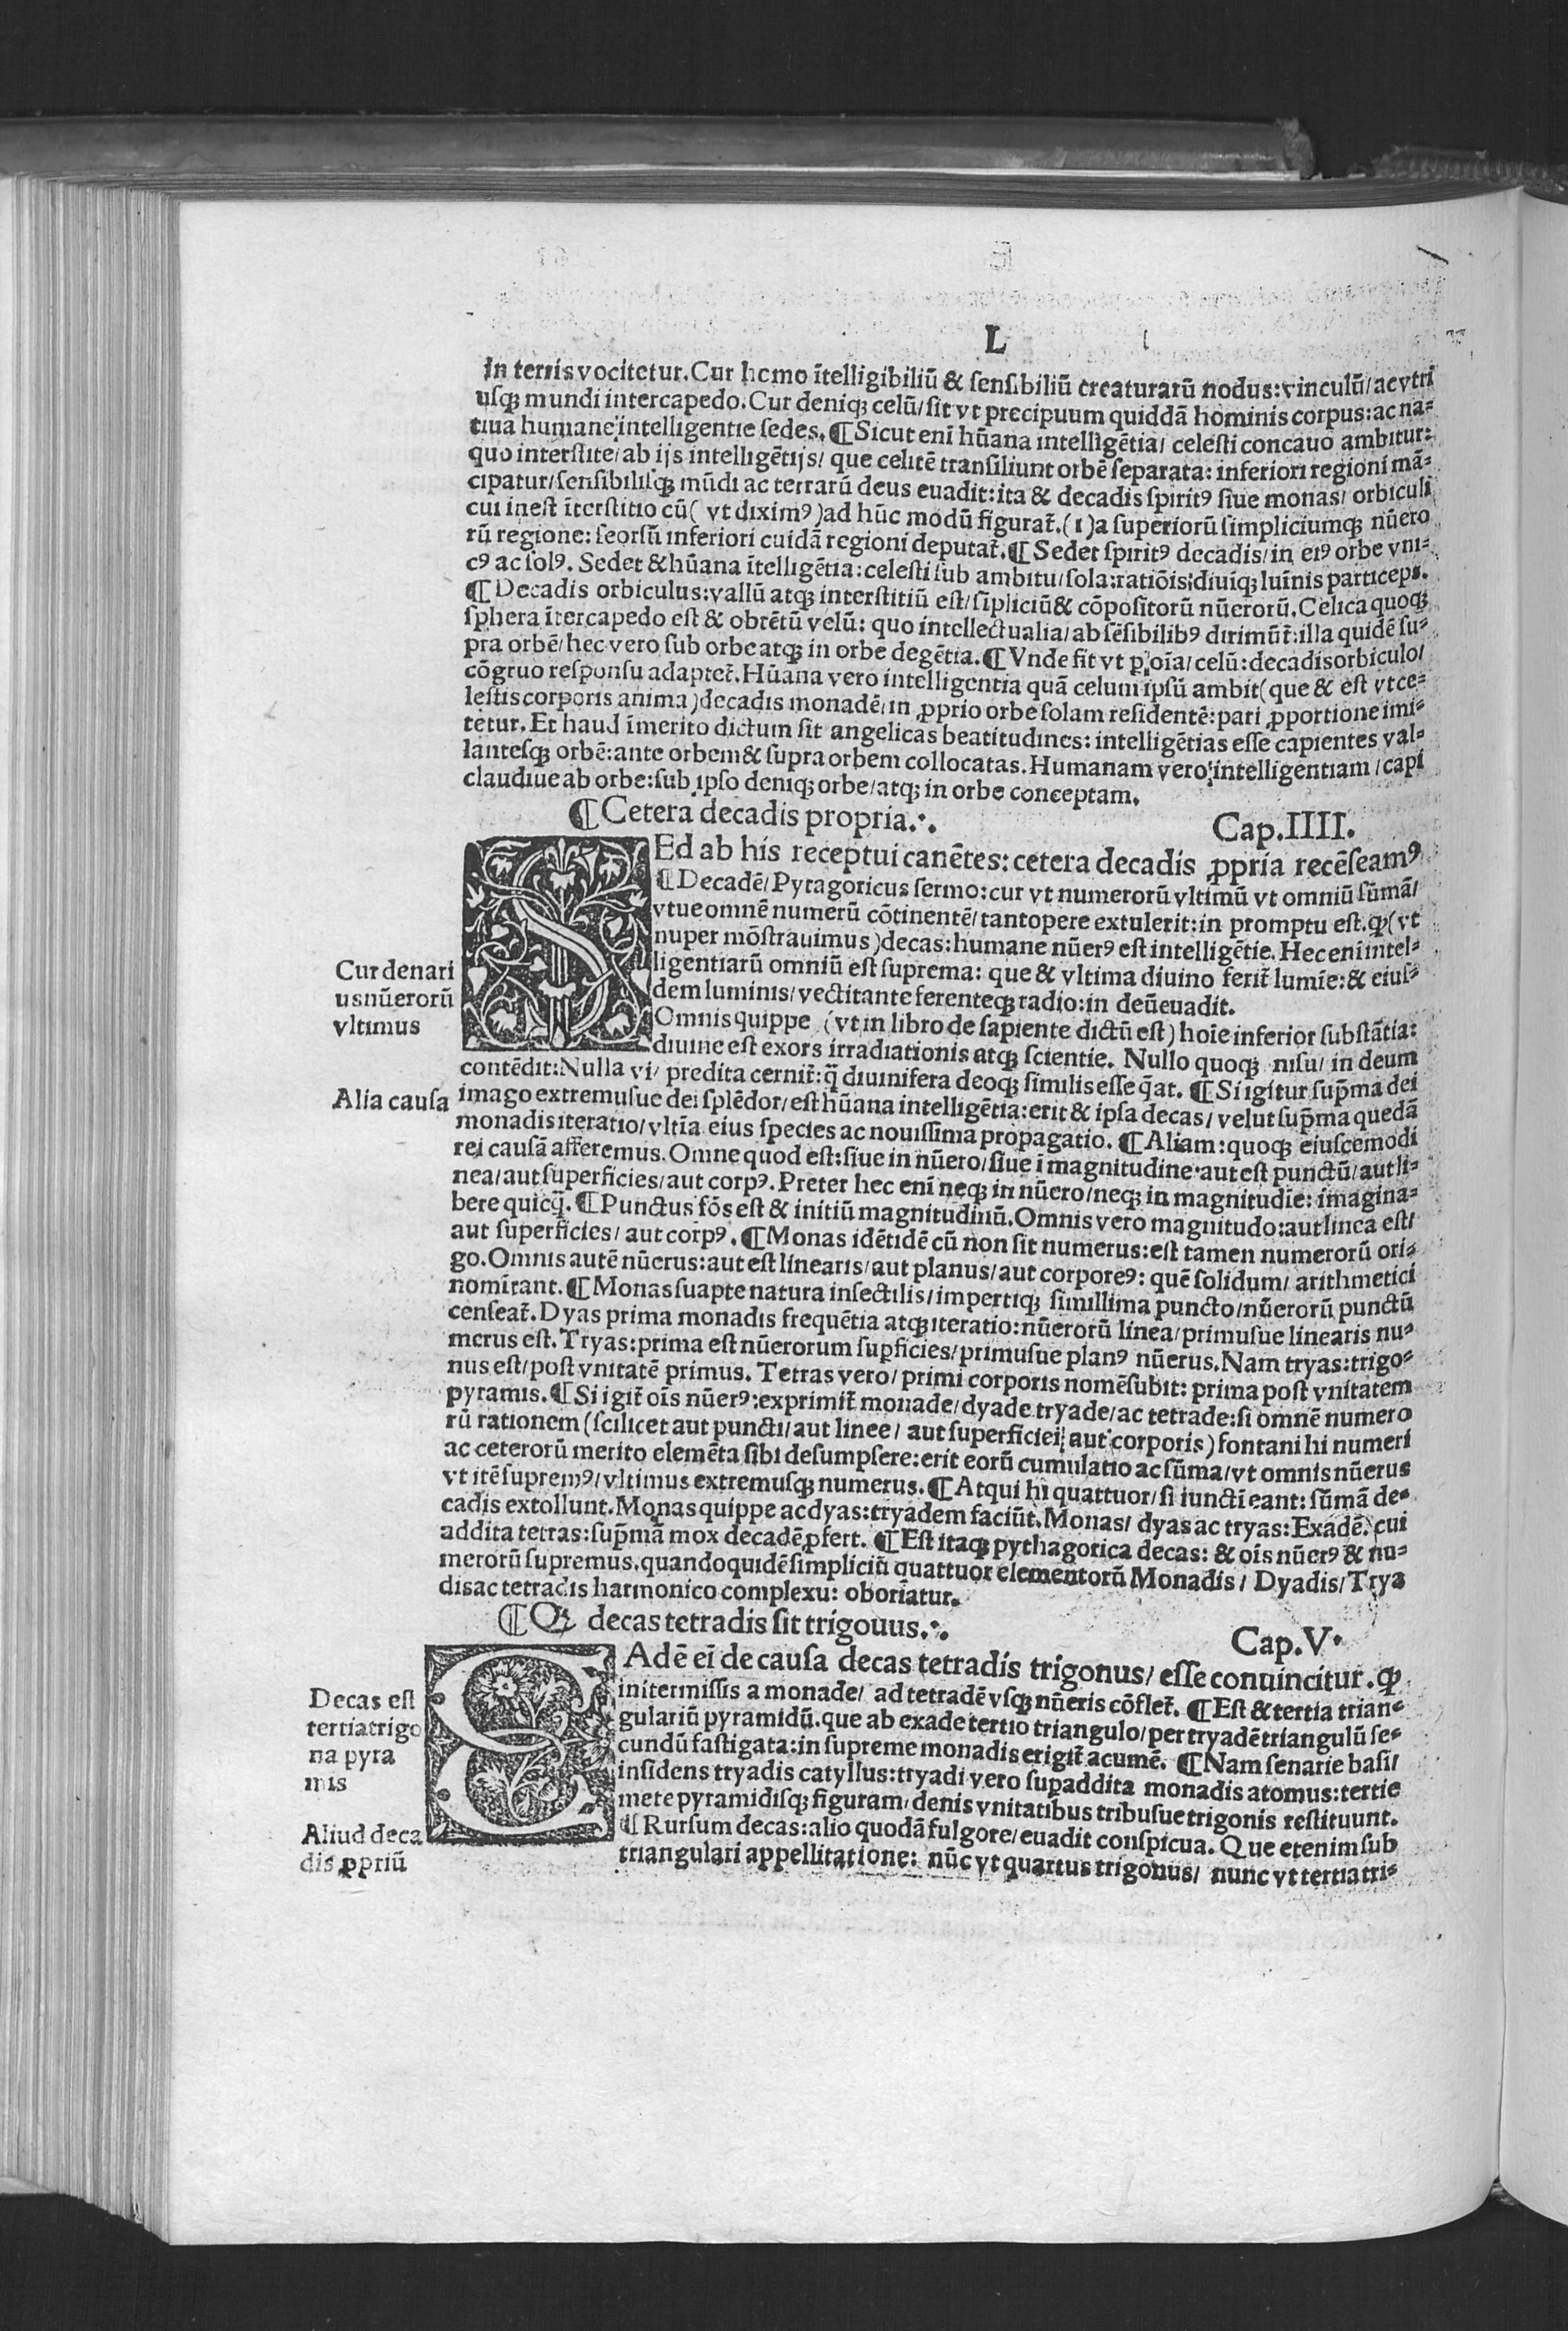 L
In terris vocitetur. Cur homo ītelligibiliū & sensibiliū creaturarū nodus: vinculū/ ac vtri
usq; mundi intercapedo. Cur deniq; celū/ sit vt precipuum quiddā hominis corpus: ac na-
tiua humane intelligentie sedes. ¶ Sicut enī hūana intelligētia/ celesti concauo ambitur:
quo interstite/ ab ijs intelligētijs/ que celitē transiliunt orbē separata: inferiori regioni mā-
cipatur/ sensibilisq; mūdi ac terrarū deus euadit: ita & decadis spirit9 siue monas/ orbiculi
cui inest īterstitio cū ( vt dixim9 ) ad hūc modū figurat̄. (1) a superiorū simpliciumq; nūero
rū regione: seorsū inferiori cuidā regioni deputat̄. ¶ Sedet spirit9 decadis/ in ei9 orbe vni-
c9 ac sol9. Sedet & hūana ītelligētia: celesti sub ambitu/ sola: ratiōis: diuiq; luīnis particeps.
¶ Decadis orbiculus: vallū atq; interstitiū est/ sīpliciū & cōpositorū nūerorū. Celica quoq;
sphera ītercapedo est & obtētū velū: quo intellectualia/ ab sēsibilib9 dirimūt̄: illa quidē su-
pra orbē/ hec vero sub orbe atq; in orbe degētia. ¶ Vnde fit vt p oīa/ celū: decadis orbiculo/
cōgruo responsu adaptet̄. Hūana vero intelligentia quā celum ipsū ambit ( que & est vt ce-
lestis corporis anima ) decadis monadē/ in ꝓprio orbe solam residentē: pari ꝓportione imi-
tetur. Et haud īmerito dictum sit angelicas beatitudines: intelligētias esse capientes val-
lantesq; orbē: ante orbem & supra orbem collocatas. Humanam vero intelligentiam/ capi
claudiue ab orbe: sub ipso deniq; orbe/ atq; in orbe conceptam.
¶ Cetera decadis propria. Cap. IIII.
Ed ab his receptui canētes: cetera decadis ꝓpria recēseam9
¶ Decadē/ Pytagoricus sermo: cur vt numerorū vltimū vt omniū sūmā/
vtue omnē numerū cōtinentē/ tantopere extulerit: in promptu est. ꝙ ( vt
nuper mōstrauimus ) decas: humane nūer9 est intelligētie. Hec enī intel-
ligentiarū omniū est suprema: que & vltima diuino ferit̄ lumīe: & eius-
dem luminis/ vectitante ferenteq; radio: in deū euadit.
Omnis quippe ( vt in libro de sapiente dictū est ) hoīe inferior substātia:
diuine est exors irradiationis atq; scientie. Nullo quoq; nisu/ in deum
contēdit: Nulla vi/ predita cernit̄: q̄ diuinifera deoq; similis esse q̄at. ¶ Si igitur sup̄ma dei
imago extremusue dei splēdor/ est hūana intelligētia: erit & ipsa decas/ velut sup̄ma quedā
monadis iteratio/ vltīa eius species ac nouissima propagatio. ¶ Aliam: quoq; eiuscemodi
rei causā afferemus. Omne quod est: siue in nūero/ siue ī magnitudine aut est punctū/ aut li-
nea/ aut superficies/ aut corp9. Preter hec enī neq; in nūero/ neq; in magnitudīe: imagina-
bere quicq̄. ¶ Punctus fōs est & initiū magnitudinū. Omnis vero magnitudo: aut linea est/
aut superficies/ aut corp9. ¶ Monas idētidē cū non sit numerus: est tamen numerorū ori-
go. Omnis autē nūerus: aut est linearis/ aut planus/ aut corpore9: quē solidum/ arithmetici
nomīrant. ¶ Monas suapte natura insectilis/ impertiq; simillima puncto/ nūerorū punctū
censeat̄. Dyas prima monadis frequētia atq; iteratio: nūerorū linea/ primusue linearis nu-
merus est. Tryas: prima est nūerorum supficies/ primusue plan9 nūerus. Nam tryas: trigo-
nus est/ post vnitatē primus. Tetras vero/ primi corporis nomē subit: prima post vnitatem
pyramis. ¶ Si igit̄ oīs nūer9: exprimit̄ monade/ dyade tryade/ ac tetrade: si omnē numero
rū rationem ( scilicet aut puncti/ aut linee/ aut superficiei/ aut corporis ) fontani hi numeri
ac ceterorū merito elemēta sibi desumpsere: erit eorū cumulatio ac sūma/ vt omnis nūerus
vt itē suprem9/ vltimus extremusq; numerus. ¶ Atqui hi quattuor/ si iunctī eant: sūmā de-
cadis extollunt. Monas quippe ac dyas: tryadem faciūt. Monas/ dyas ac tryas: Exadē. cui
addita tetras: sup̄mā mox decadē ꝓfert. ¶ Est itaq; pythagorica decas: & oīs nūer9 & nu-
merorū supremus. quandoquidē simpliciū quattuor elementorū Monadis/ Dyadis/ Trya
dis ac tetradis harmonico complexu: oboriatur.
¶ Qz decas tetradis sit trigouus. Cap. V.
Adē eī de causa decas tetradis trigonus/ esse conuincitur. ꝙ
initermissis a monade/ ad tetradē vsq; nūeris cōflet̄. ¶ Est & tertia trian-
gulariū pyramidū. que ab exade tertio triangulo/ per tryadē triangulū se-
cundū fastigata: in supreme monadis erigit̄ acumē. ¶ Nam senarie basi/
insidens tryadis catyllus: tryadi vero supaddita monadis atomus: tertie
mete pyramidisq; figuram/ denis vnitatibus tribusue trigonis restituunt.
¶ Rursum decas: alio quodā fulgore/ euadit conspicua. Que etenim sub
triangulari appellitatione: nūc vt quartus trigonus/ nunc vt tertia tri-
Cur denari
us nūerorū
vltimus
Alia causa
Decas est
tertia trigo
na pyra
mis
Aliud deca
dis ꝓpriū